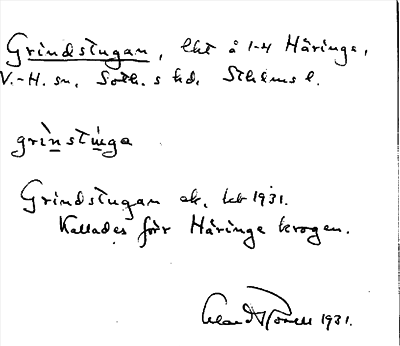 Grindstugan, lht å 1-4 Häringe,
V.-H. sn, Soth.s hd. Sthlms l.
grìnstùga
Grindstugan ek. kb 1931.
Kallades förr Häringe krogen.
1931.